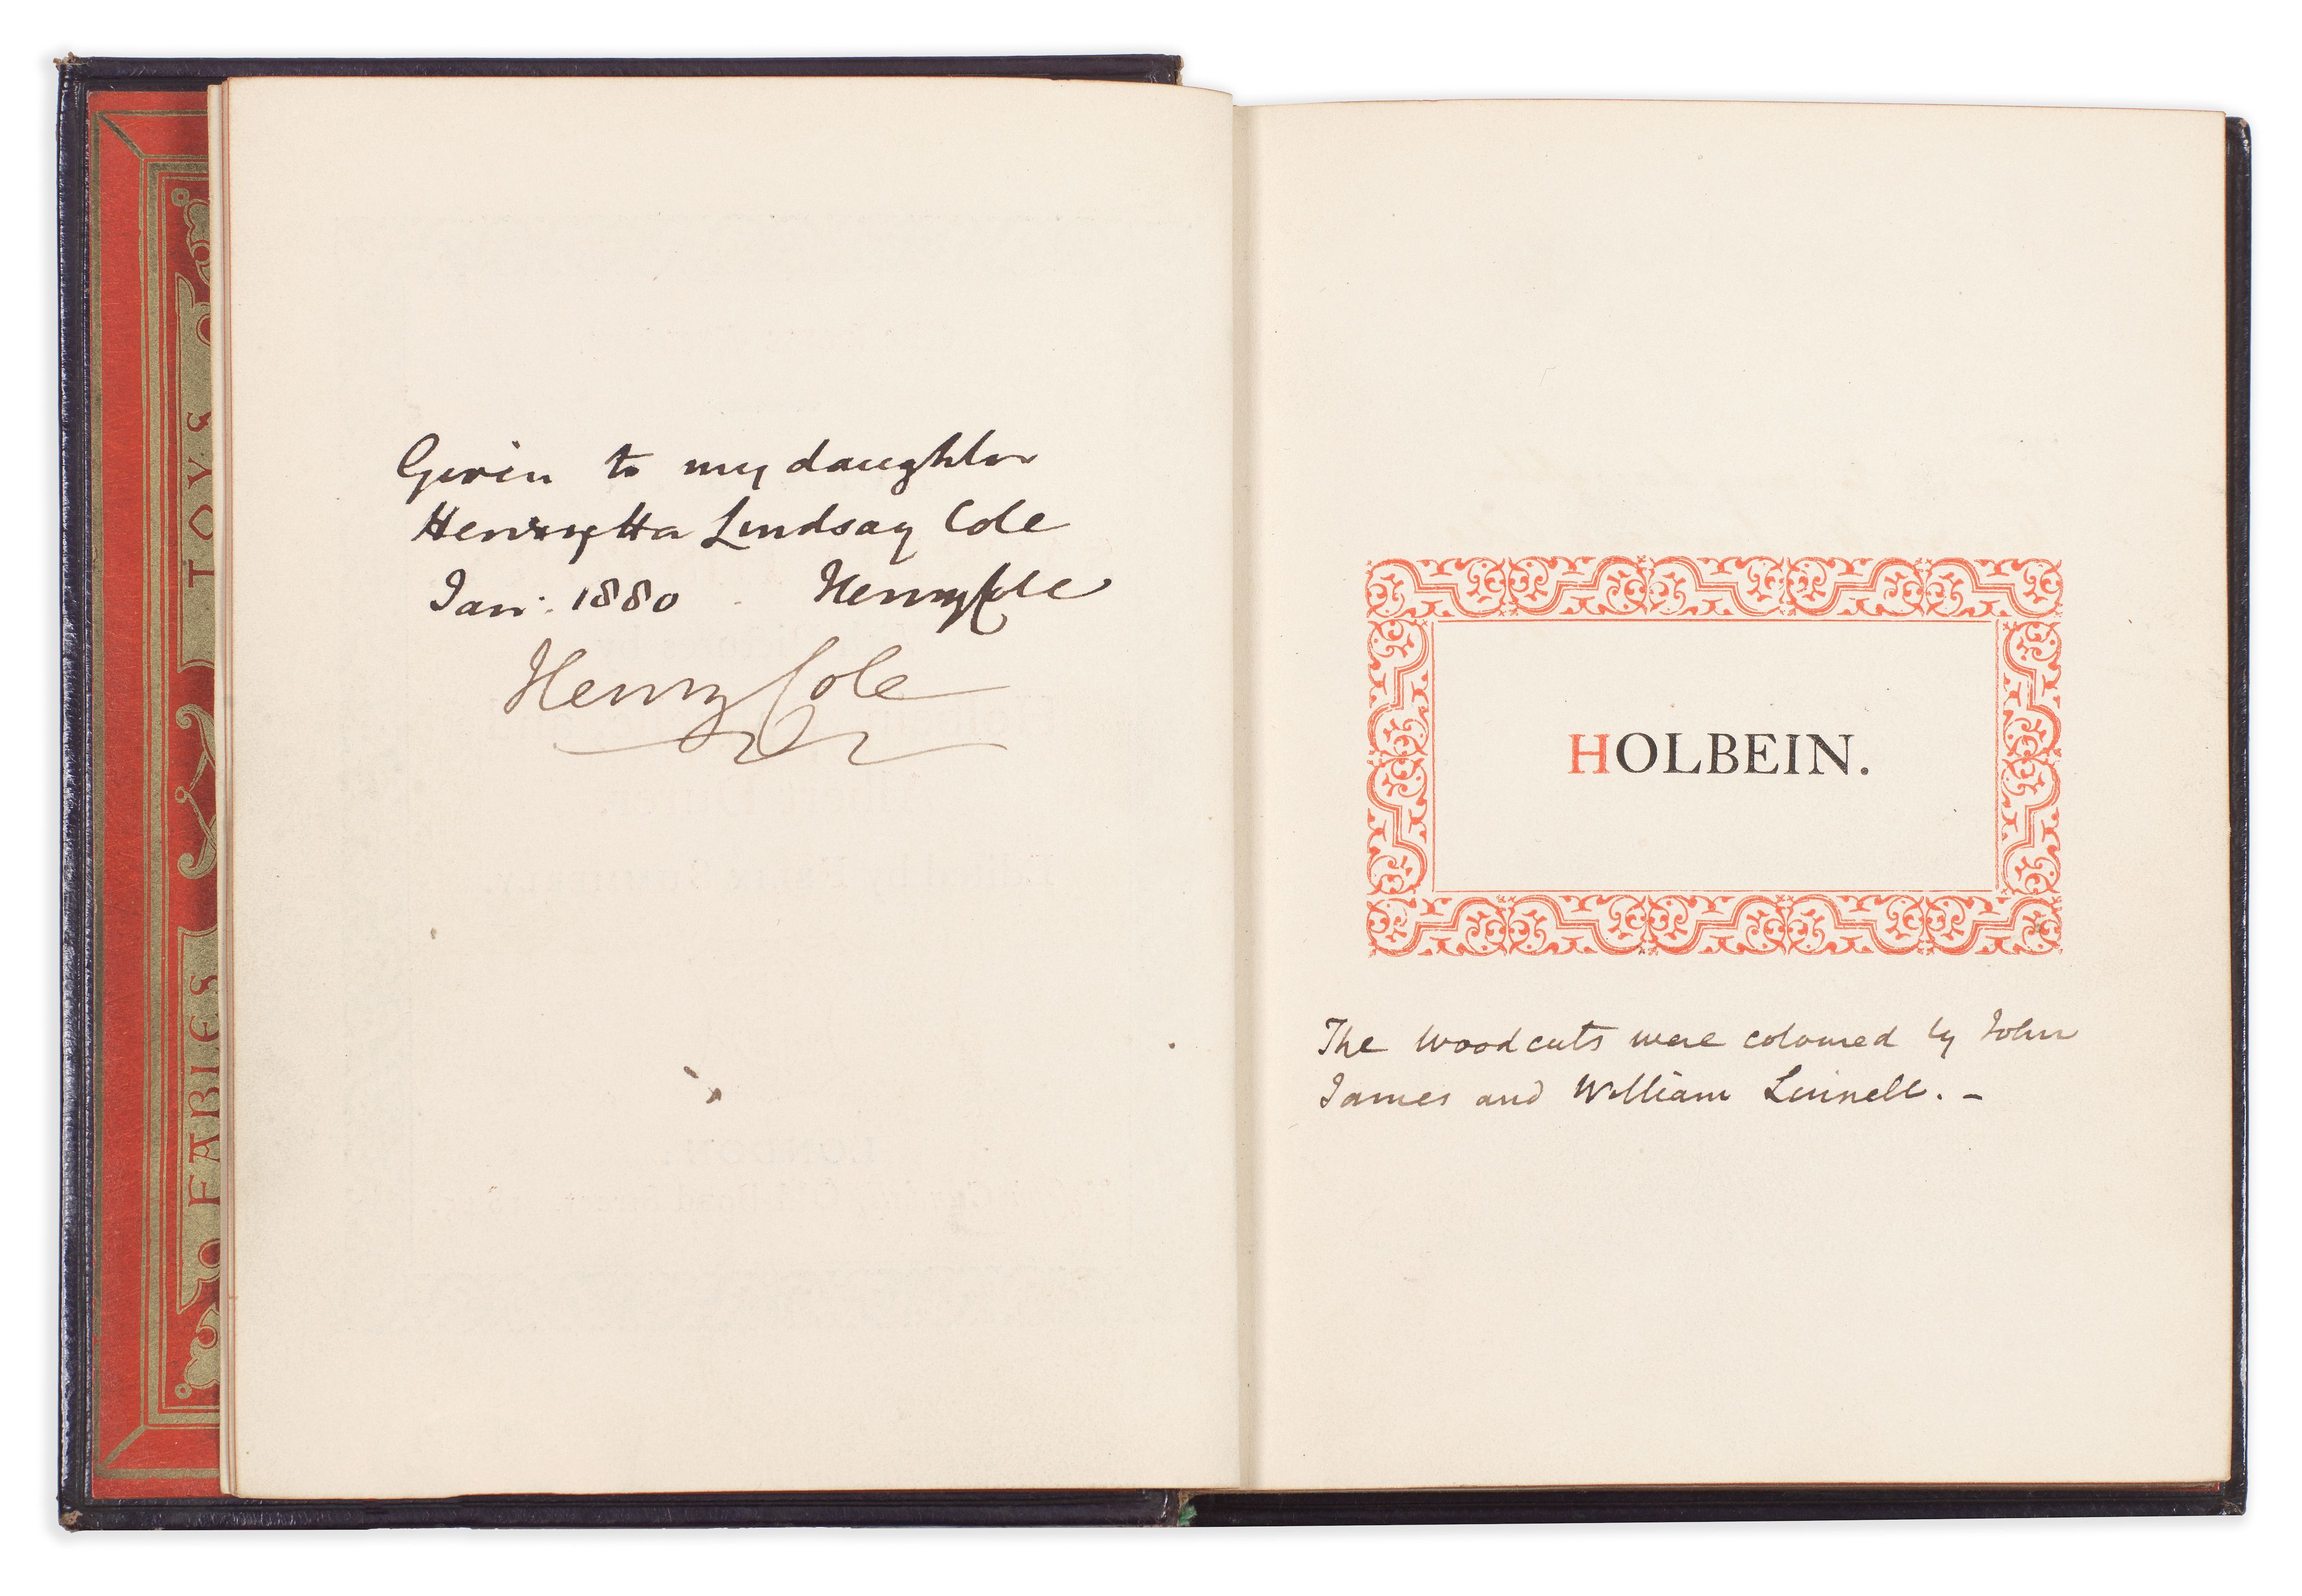 TOYS
FABLES
Given to my daughter
Henrietta Lindsay Cole
Jan: 1880 Henry Cole
Henry Cole
HOLBEIN.
The woodcuts were coloured by John
James and William Linnell. –
LONDON